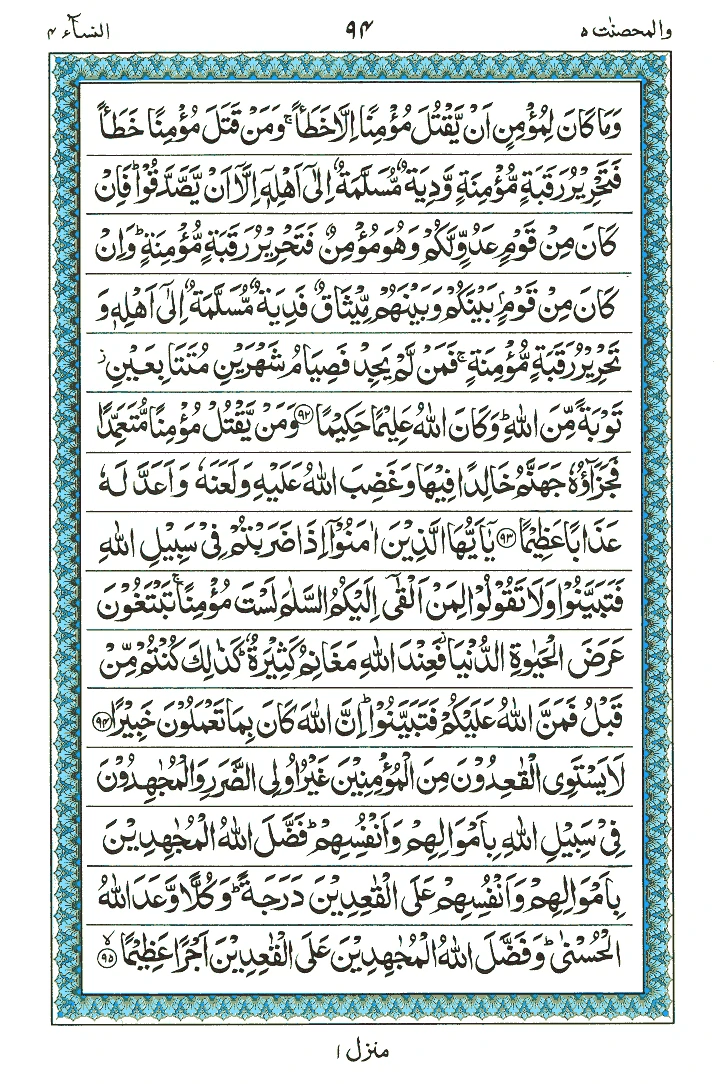 والمحصنٰت ۵ ۹۴ النسآء ۴
وَمَا كَانَ لِمُؤْمِنٍ اَنْ يَّقْتُلَ مُؤْمِنًا اِلَّا خَطَـًٔا ۚ وَمَنْ قَتَلَ مُؤْمِنًا خَطَـًٔا
فَتَحْرِيْرُ رَقَبَةٍ مُّؤْمِنَةٍ وَّدِيَةٌ مُّسَلَّمَةٌ اِلٰٓى اَهْلِهٖٓ اِلَّاۤ اَنْ يَّصَّدَّقُوْا ؕ فَاِنْ
كَانَ مِنْ قَوْمٍ عَدُوٍّ لَّكُمْ وَهُوَ مُؤْمِنٌ فَتَحْرِيْرُ رَقَبَةٍ مُّؤْمِنَةٍ ؕ وَاِنْ
كَانَ مِنْ قَوْمٍۭ بَيْنَكُمْ وَبَيْنَهُمْ مِّيْثَاقٌ فَدِيَةٌ مُّسَلَّمَةٌ اِلٰٓى اَهْلِهٖ وَ
تَحْرِيْرُ رَقَبَةٍ مُّؤْمِنَةٍ ۚ فَمَنْ لَّمْ يَجِدْ فَصِيَامُ شَهْرَيْنِ مُتَتَابِعَيْنِ ؗ
تَوْبَةً مِّنَ اللّٰهِ ؕ وَكَانَ اللّٰهُ عَلِيْمًا حَكِيْمًا ۝۹۲ وَمَنْ يَّقْتُلْ مُؤْمِنًا مُّتَعَمِّدًا
فَجَزَآؤُهٗ جَهَنَّمُ خَالِدًا فِيْهَا وَغَضِبَ اللّٰهُ عَلَيْهِ وَلَعَنَهٗ وَاَعَدَّ لَهٗ
عَذَابًا عَظِيْمًا ۝۹۳ يٰۤاَيُّهَا الَّذِيْنَ اٰمَنُوْۤا اِذَا ضَرَبْتُمْ فِيْ سَبِيْلِ اللّٰهِ
فَتَبَيَّنُوْا وَلَا تَقُوْلُوْا لِمَنْ اَلْقٰۤى اِلَيْكُمُ السَّلٰمَ لَسْتَ مُؤْمِنًا ۚ تَبْتَغُوْنَ
عَرَضَ الْحَيٰوةِ الدُّنْيَا ؗ فَعِنْدَ اللّٰهِ مَغَانِمُ كَثِيْرَةٌ ؕ كَذٰلِكَ كُنْتُمْ مِّنْ
قَبْلُ فَمَنَّ اللّٰهُ عَلَيْكُمْ فَتَبَيَّنُوْا ؕ اِنَّ اللّٰهَ كَانَ بِمَا تَعْمَلُوْنَ خَبِيْرًا ۝۹۴
لَا يَسْتَوِي الْقٰعِدُوْنَ مِنَ الْمُؤْمِنِيْنَ غَيْرُ اُولِي الضَّرَرِ وَالْمُجٰهِدُوْنَ
فِيْ سَبِيْلِ اللّٰهِ بِاَمْوَالِهِمْ وَاَنْفُسِهِمْ ؕ فَضَّلَ اللّٰهُ الْمُجٰهِدِيْنَ
بِاَمْوَالِهِمْ وَاَنْفُسِهِمْ عَلَى الْقٰعِدِيْنَ دَرَجَةً ؕ وَكُلًّا وَّعَدَ اللّٰهُ
الْحُسْنٰى ؕ وَفَضَّلَ اللّٰهُ الْمُجٰهِدِيْنَ عَلَى الْقٰعِدِيْنَ اَجْرًا عَظِيْمًا ۙ۝۹۵
منزل ۱